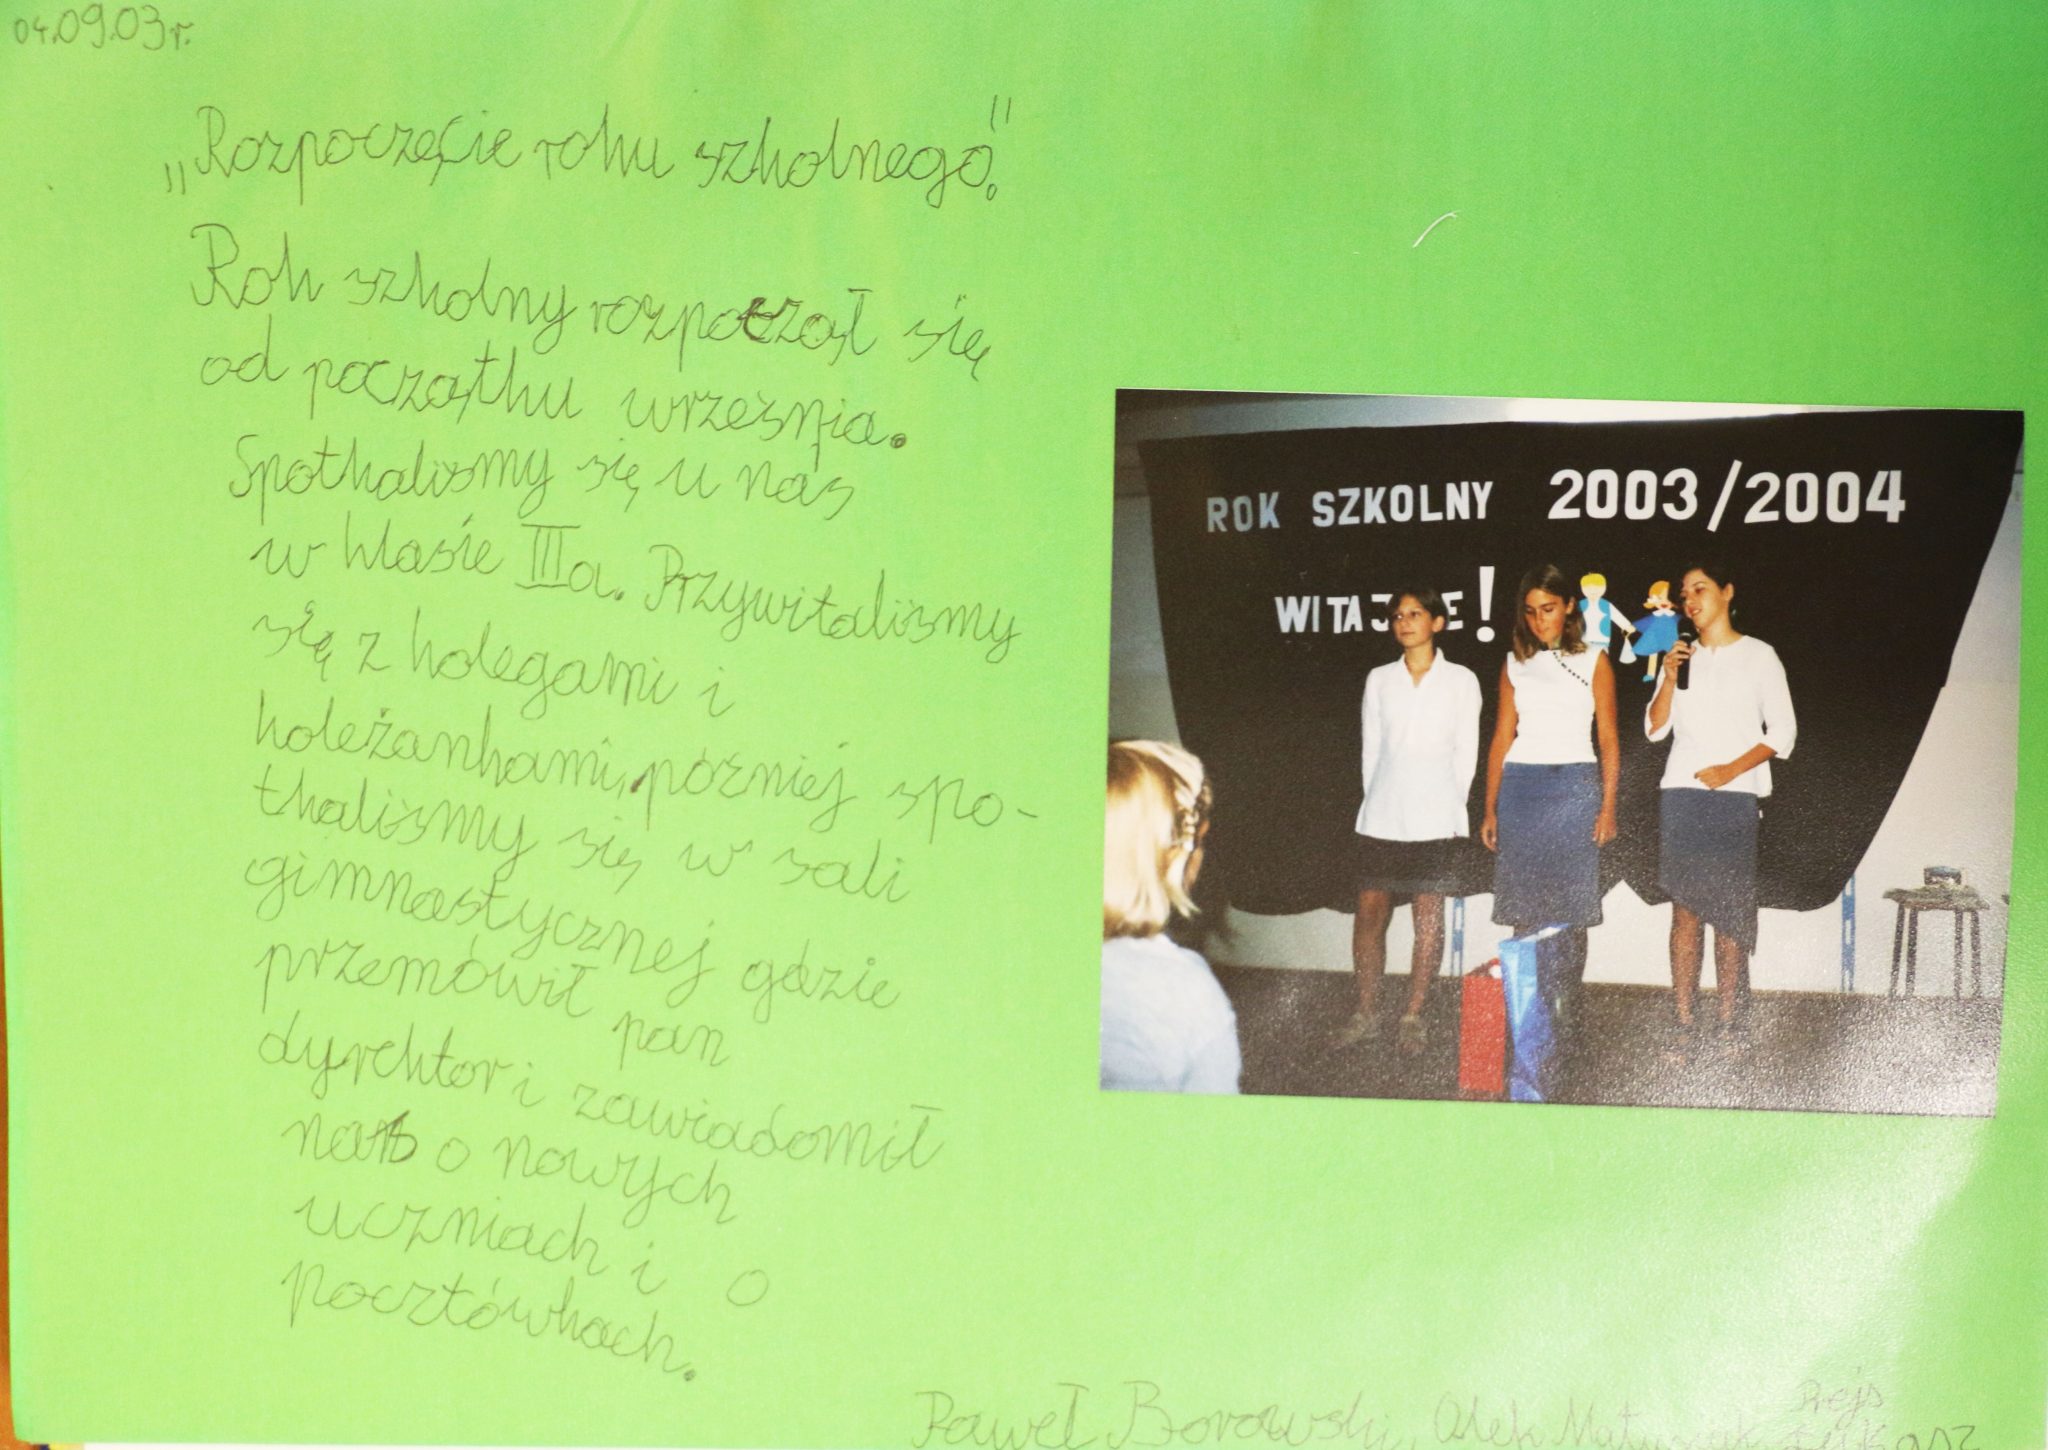 04.09.03r.
„Rozpoczęcie roku szkolnego."
Rok szkolny rozpoczął się
od początku września.
Spotkaliśmy się u nas
w klasie IIIa. Przywitaliśmy
się z kolegami i
koleżankami, później spo-
tkaliśmy się w sali
gimnastycznej gdzie
przemówił pan
dyrektor i zawiadomił
nas o nowych
uczniach i o
pocztówkach.
ROK SZKOLNY 2003/2004
WITAJCIE!
Paweł Borowski, Olek Matysiak